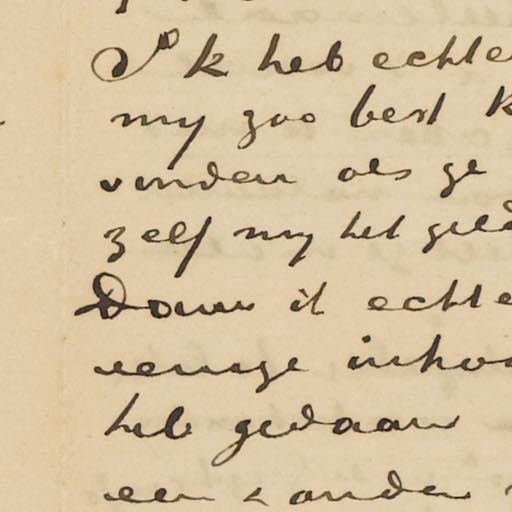 Ik heb echte
my zoo best k
vinden als ge
zelf my het geld
Daar ik echte
eenige inhou
heb gedaan
een & ander